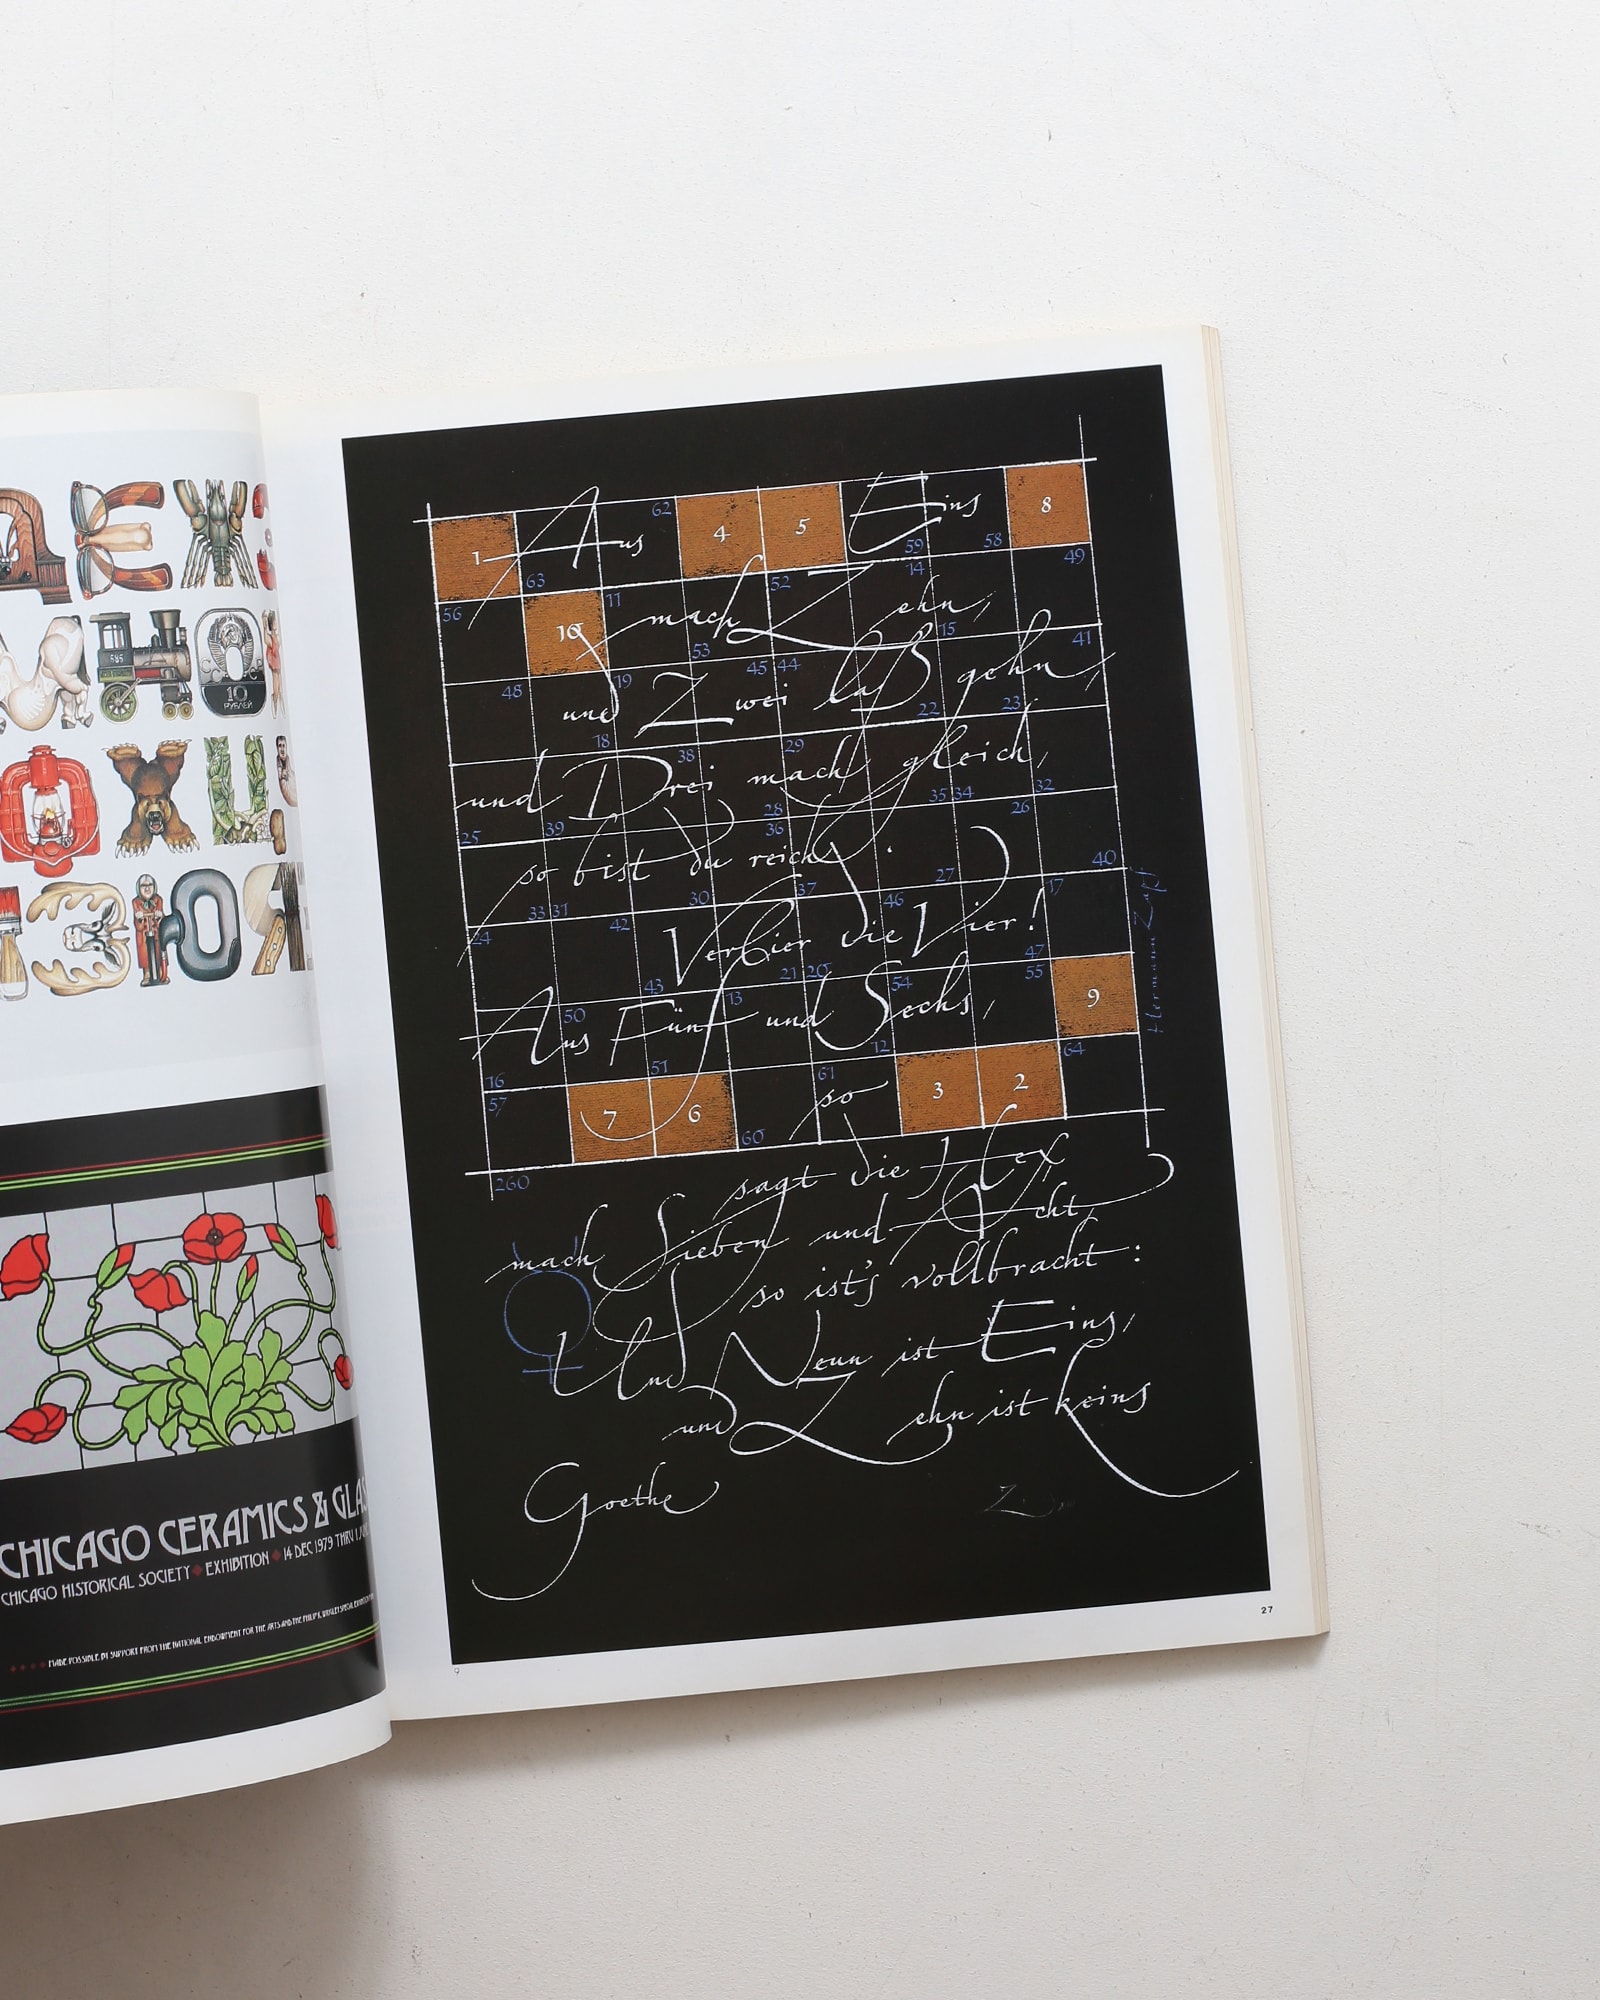 585
10
РУБЛЕЙ
CHICAGO CERAMICS & GLA
CHICAGO HISTORICAL SOCIETY ◆ EXHIBITION ◆ 14 DEC 1979 THRU
MADE POSSIBLE BY SUPPORT FROM THE NATIONAL ENDOWMENT FOR THE ARTS AND THE
1 Aus 62 4 5 Eins 59 58 8
56 63 10 11 mach 53 52 Zehn, 14 15 49
48 und 18 19 Zwei 45 44 laß gehn, 22 23 41
25 und 39 Drei 38 mach 28 29 gleich, 35 34 32
so bist du reich. 36 26
24 33 31 42 30 37 27 40
Verbier die Vier! 46 47 17
Aus Fünf und Sechs,
16 50 51 43 13 21 20 12 54 55 9
57 7 6 60 61 so 3 2 64
260
sagt die Hex,
mach Sieben und Acht,
so ist's vollbracht:
Und Neun ist Eins,
und Zehn ist keins
Goethe
Hermann Zapf
9
27